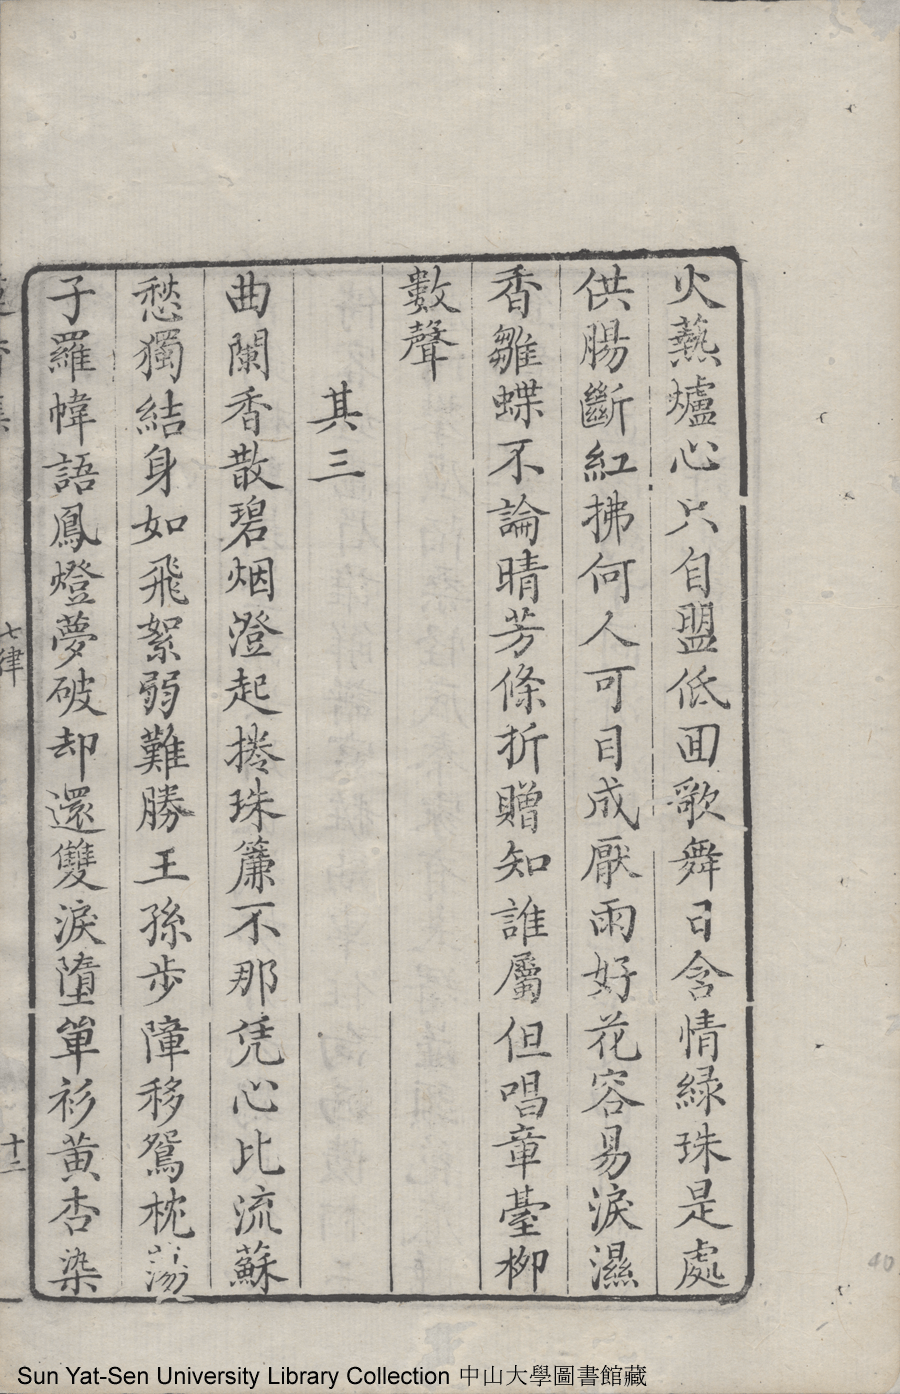 火蓺爐心只自盟低回歌舞日含情緑珠是處
供腸斷紅拂何人可目成厭雨好花容易淚濕
香雛蝶不論晴芳條折贈知誰屬但唱章臺柳
數聲
其三
曲闌香散碧烟澄起捲珠簾不那凭心比流蘇
愁獨結身如飛絮弱難勝王孫步障移鴛枕蕩
子羅幃語鳳燈夢破却還雙淚墮單衫黄杏染
七律
十二
Sun Yat-Sen University Library Collection 中山大學圖書館藏